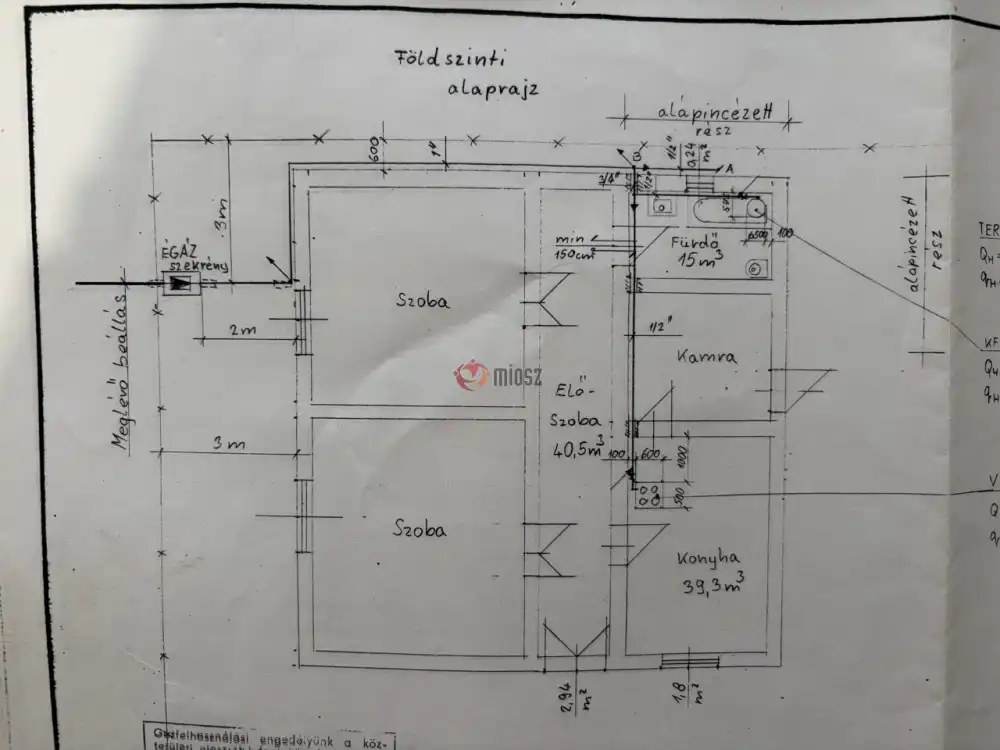 Földszinti
alaprajz
alápincézett
rész
600
1"
1/2"
0,24
m²
A
B
3/4"
1/2"
3m
ÉGÁZ
szekrény
min
150cm²
500
Fürdő
15m³
6500
100
alápincézett
rész
TER
Szoba
2m
1/2"
Kamra
KF
Meglévő beállás
miosz
Elő-
Szoba
40,5m³
3m
100
600
1000
500
V
Szoba
Konyha
39,3m³
2,94
m²
1,8
m²
Gázfelhasználási engedélyünk a köz-